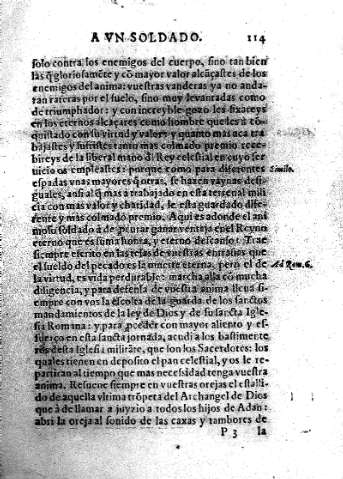 A VN SOLDADO. 114
solo contra los enemigos del cuerpo, sino tan bien
las q̃ gloriosamẽte y cõ mayor valor alcãçastes de los
enemigos del anima: vuestras vanderas ya no anda-
ran rateras por el suelo, sino muy levantadas como
de triumphador: y con increyble gozo les fixareys
en los eternos alcaçares como hombre que les à cõ-
quistado con su virtud y valor: y quanto mas aca tra
bajastes y sufristes tanto mas colmado premio rece-
bireys de la liberal mano đl Rey celestial en cuyo ser
uicio os empleastes: porque como para diferentes
Simile.
espadas vnas mayores q̃ otras, se hazen vaynas desi-
guales, ansi al q̃ mas à trabajado en esta terrenal mili
cia con mas valor y charidad, le esta guardado dife-
rente y mas colmado premio. Aqui es adonde el ani
mo su soldado à de ganar ventaja en el Reyno
eterno que es suma honra, y eterno descanso: Trae
siempre escrito en las telas de vuestras entrañas que
el sueldo del pecado es la muerte eterna, pero el de
Ad Rom. 6.
la virtud, es vida perdurable: marcha alla cõ mucha
diligencia, y para defensa de vuestra anima lleua siem
pre con vos la escolta de la guarda de los sanctos
mandamientos de la ley de Dios y de su sancta Igle
sia Romana: y para proceder con mayor aliento y es-
fuerço en esta sancta jornada, acudi a los bastimẽte
ros desta Iglesia militãte, que son los Sacerdotes: los
quales tienen en deposito el pan celestial, y os le re-
partiran al tiempo que mas necesidad tenga vuestra
anima. Resuene siempre en vuestras orejas el estalli-
do de aquella vltima trõpeta del Archangel de Dios
que à de llamar a juyzio a todos los hijos de Adan:
abri la oreja al sonido de las caxas y tambores de
P 3 la